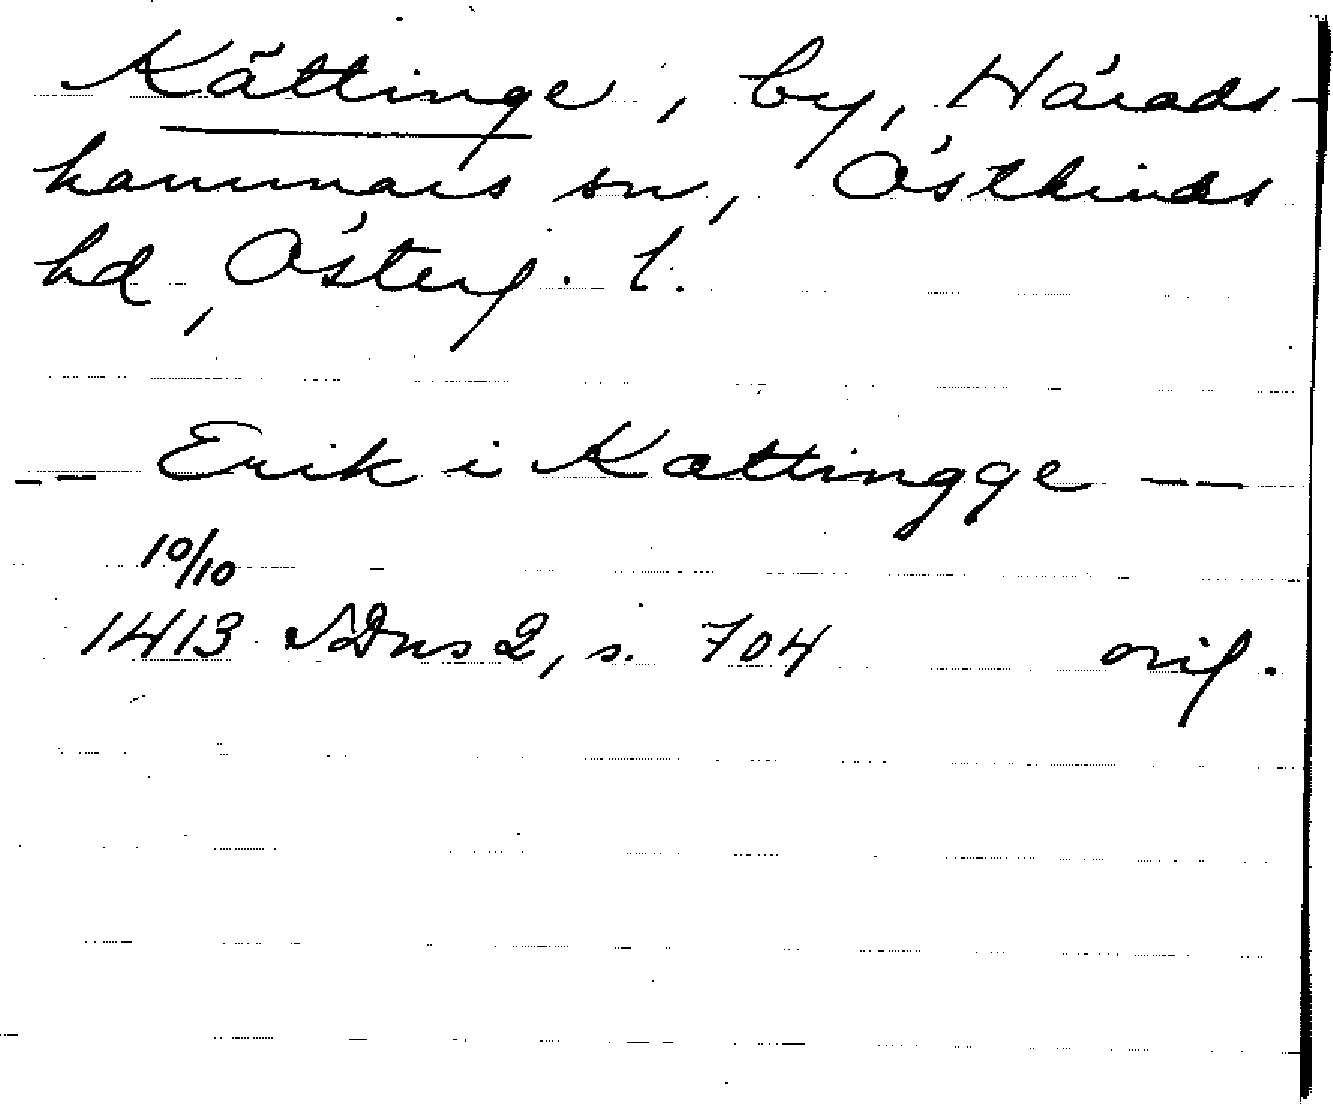 Kättinge, by, Härads-
hammars sn, Östkinds
hd, Österg. l.
-- Erik i Kættingge --
10/10
1413 SDns 2, s. 704 orig.